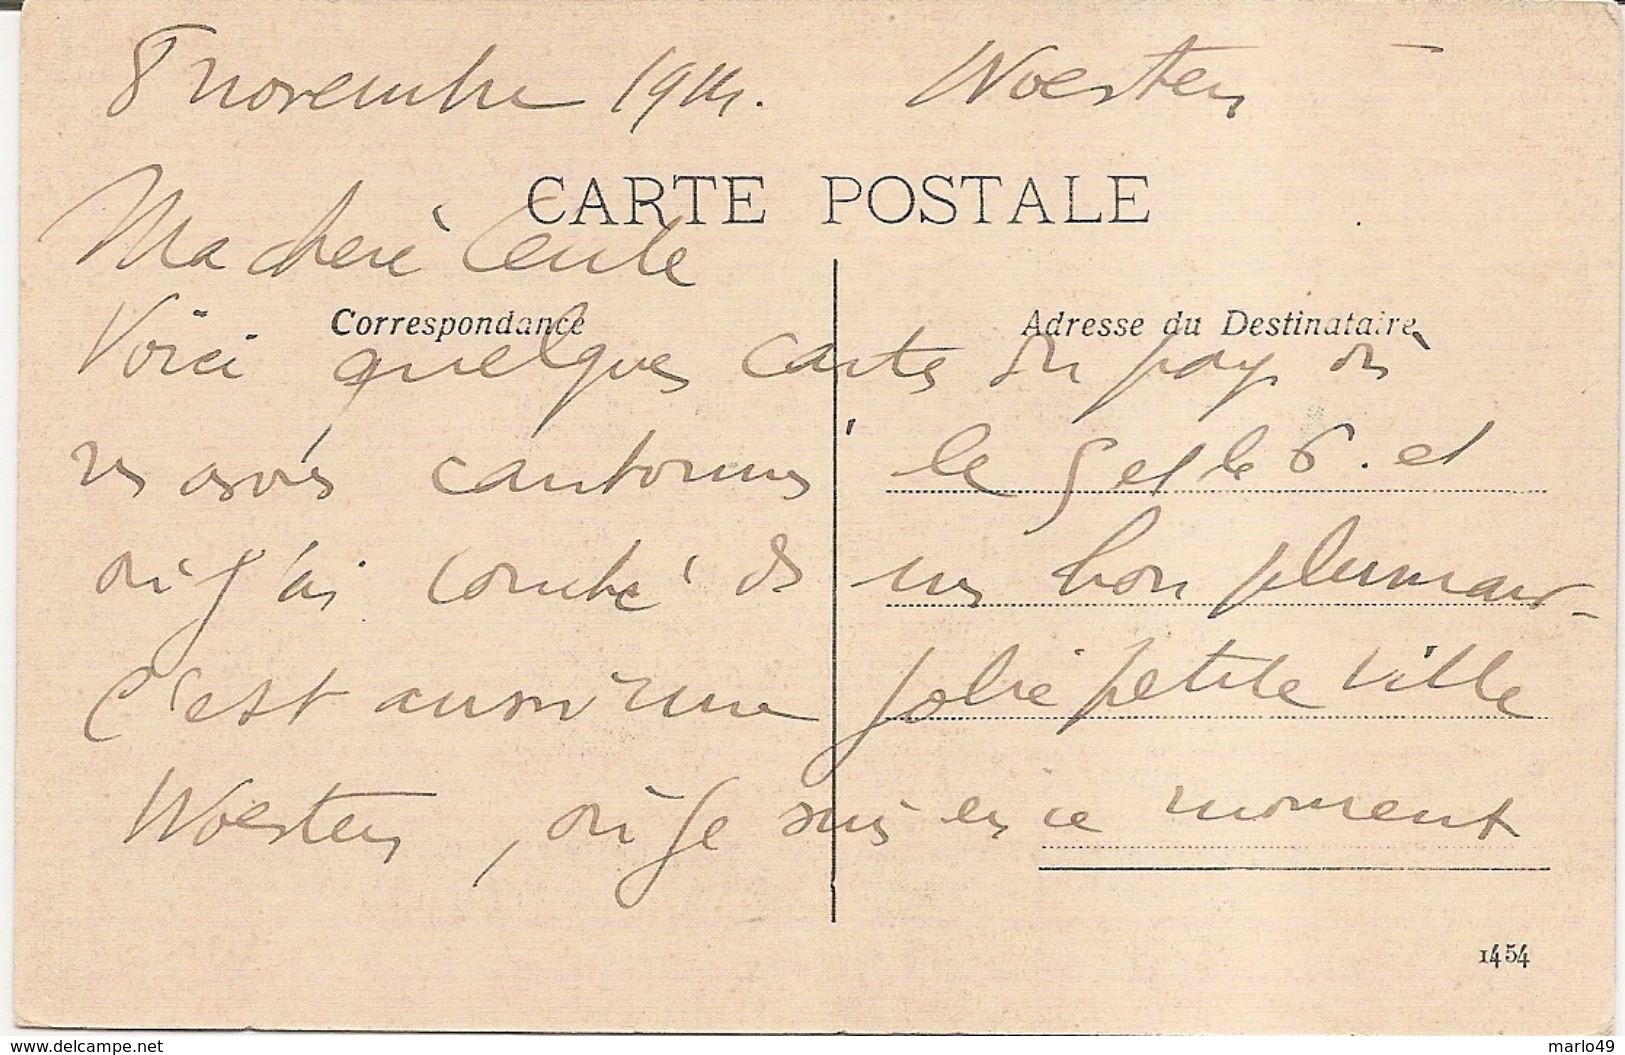 8 novembre 1914. Woesten
CARTE POSTALE
Ma chère
Correspondance
Adresse du Destinataire
Voici quelques cartes du pays où
ns avons cantonnés le 5 et le 6. et
où j'ai couché ds un bon plumard.
C'est aussi une jolie petite ville
Woesten, où je suis en ce moment
1454
www.delcampe.net
marlo49